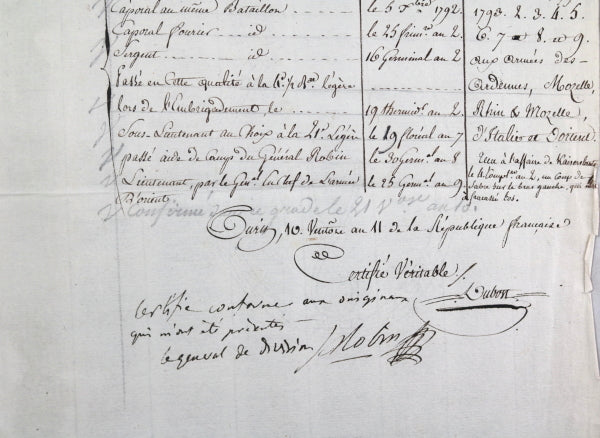 Caporal au même Bataillon ... le 5 7.bre 1792
Caporal fourier ... id ... le 25 frim.re an 2
Sergent ... id ... 16 Germinal an 2
Passé en Cette qualité à la ½ B.de Légère
lors de l'Embrigadement le ... 19 thermid.r an 2.
Sous-Lieutenant au Choix à la 21.e Légère le 19 floréal an 7
passé aide de Camp du Général Robin le 30 Germ.al an 8
Lieutenant, par le Gén.al en Chef de L'armée
D'orient le 25 Germ.al an 9
Confirmé grade le 21 an 10.
1793. 2. 3. 4. 5.
6. 7. 8. et 9.
aux armées des
ardennes, Mozelle,
Rhin & Mozelle,
d'Italie et Dorient
à l'affaire de
le an 2, un Coup de
Sabre sur le bras gauche, qui
fracassé l'os.
10. Ventôse an 11 de la République française
Certifié Véritable
Dubost
Certifié conforme aux originaux
qui m'ont été présentés
le général de division Robin